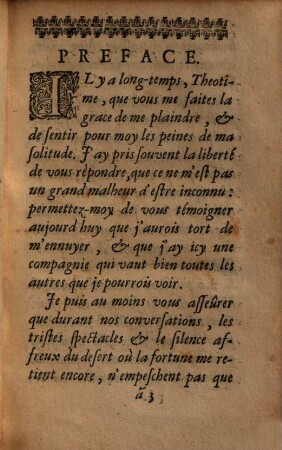 PREFACE.
IL y a long-temps, Theoti-
me, que vous me faites la
grace de me plaindre, &
de sentir pour moy les peines de ma
solitude. J'ay pris souvent la liberté
de vous répondre, que ce ne m'est pas
un grand malheur d'estre inconnu:
permettez-moy de vous témoigner
aujourd'huy que j'aurois tort de
m'ennuyer, & que j'ay icy une
compagnie qui vaut bien toutes les
autres que je pourrois voir.
Je puis au moins vous asseûrer
que durant nos conversations, les
tristes spectacles & le silence af-
freux du desert où la fortune me re-
tient encore, n'empeschent pas que
ã 3